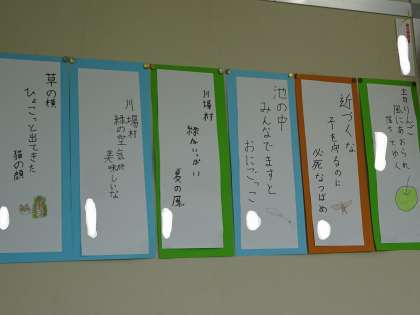 青りんご
風にあおられ
落ちてゆく
近づくな
子を守るのに
必死なつばめ
池の中
みんなでますと
おにごっこ
川場村
緑がいっぱい
夏の風
川場村
緑の空気が
美味しいな
草の横
ひょこっと出てきた
猫の顔